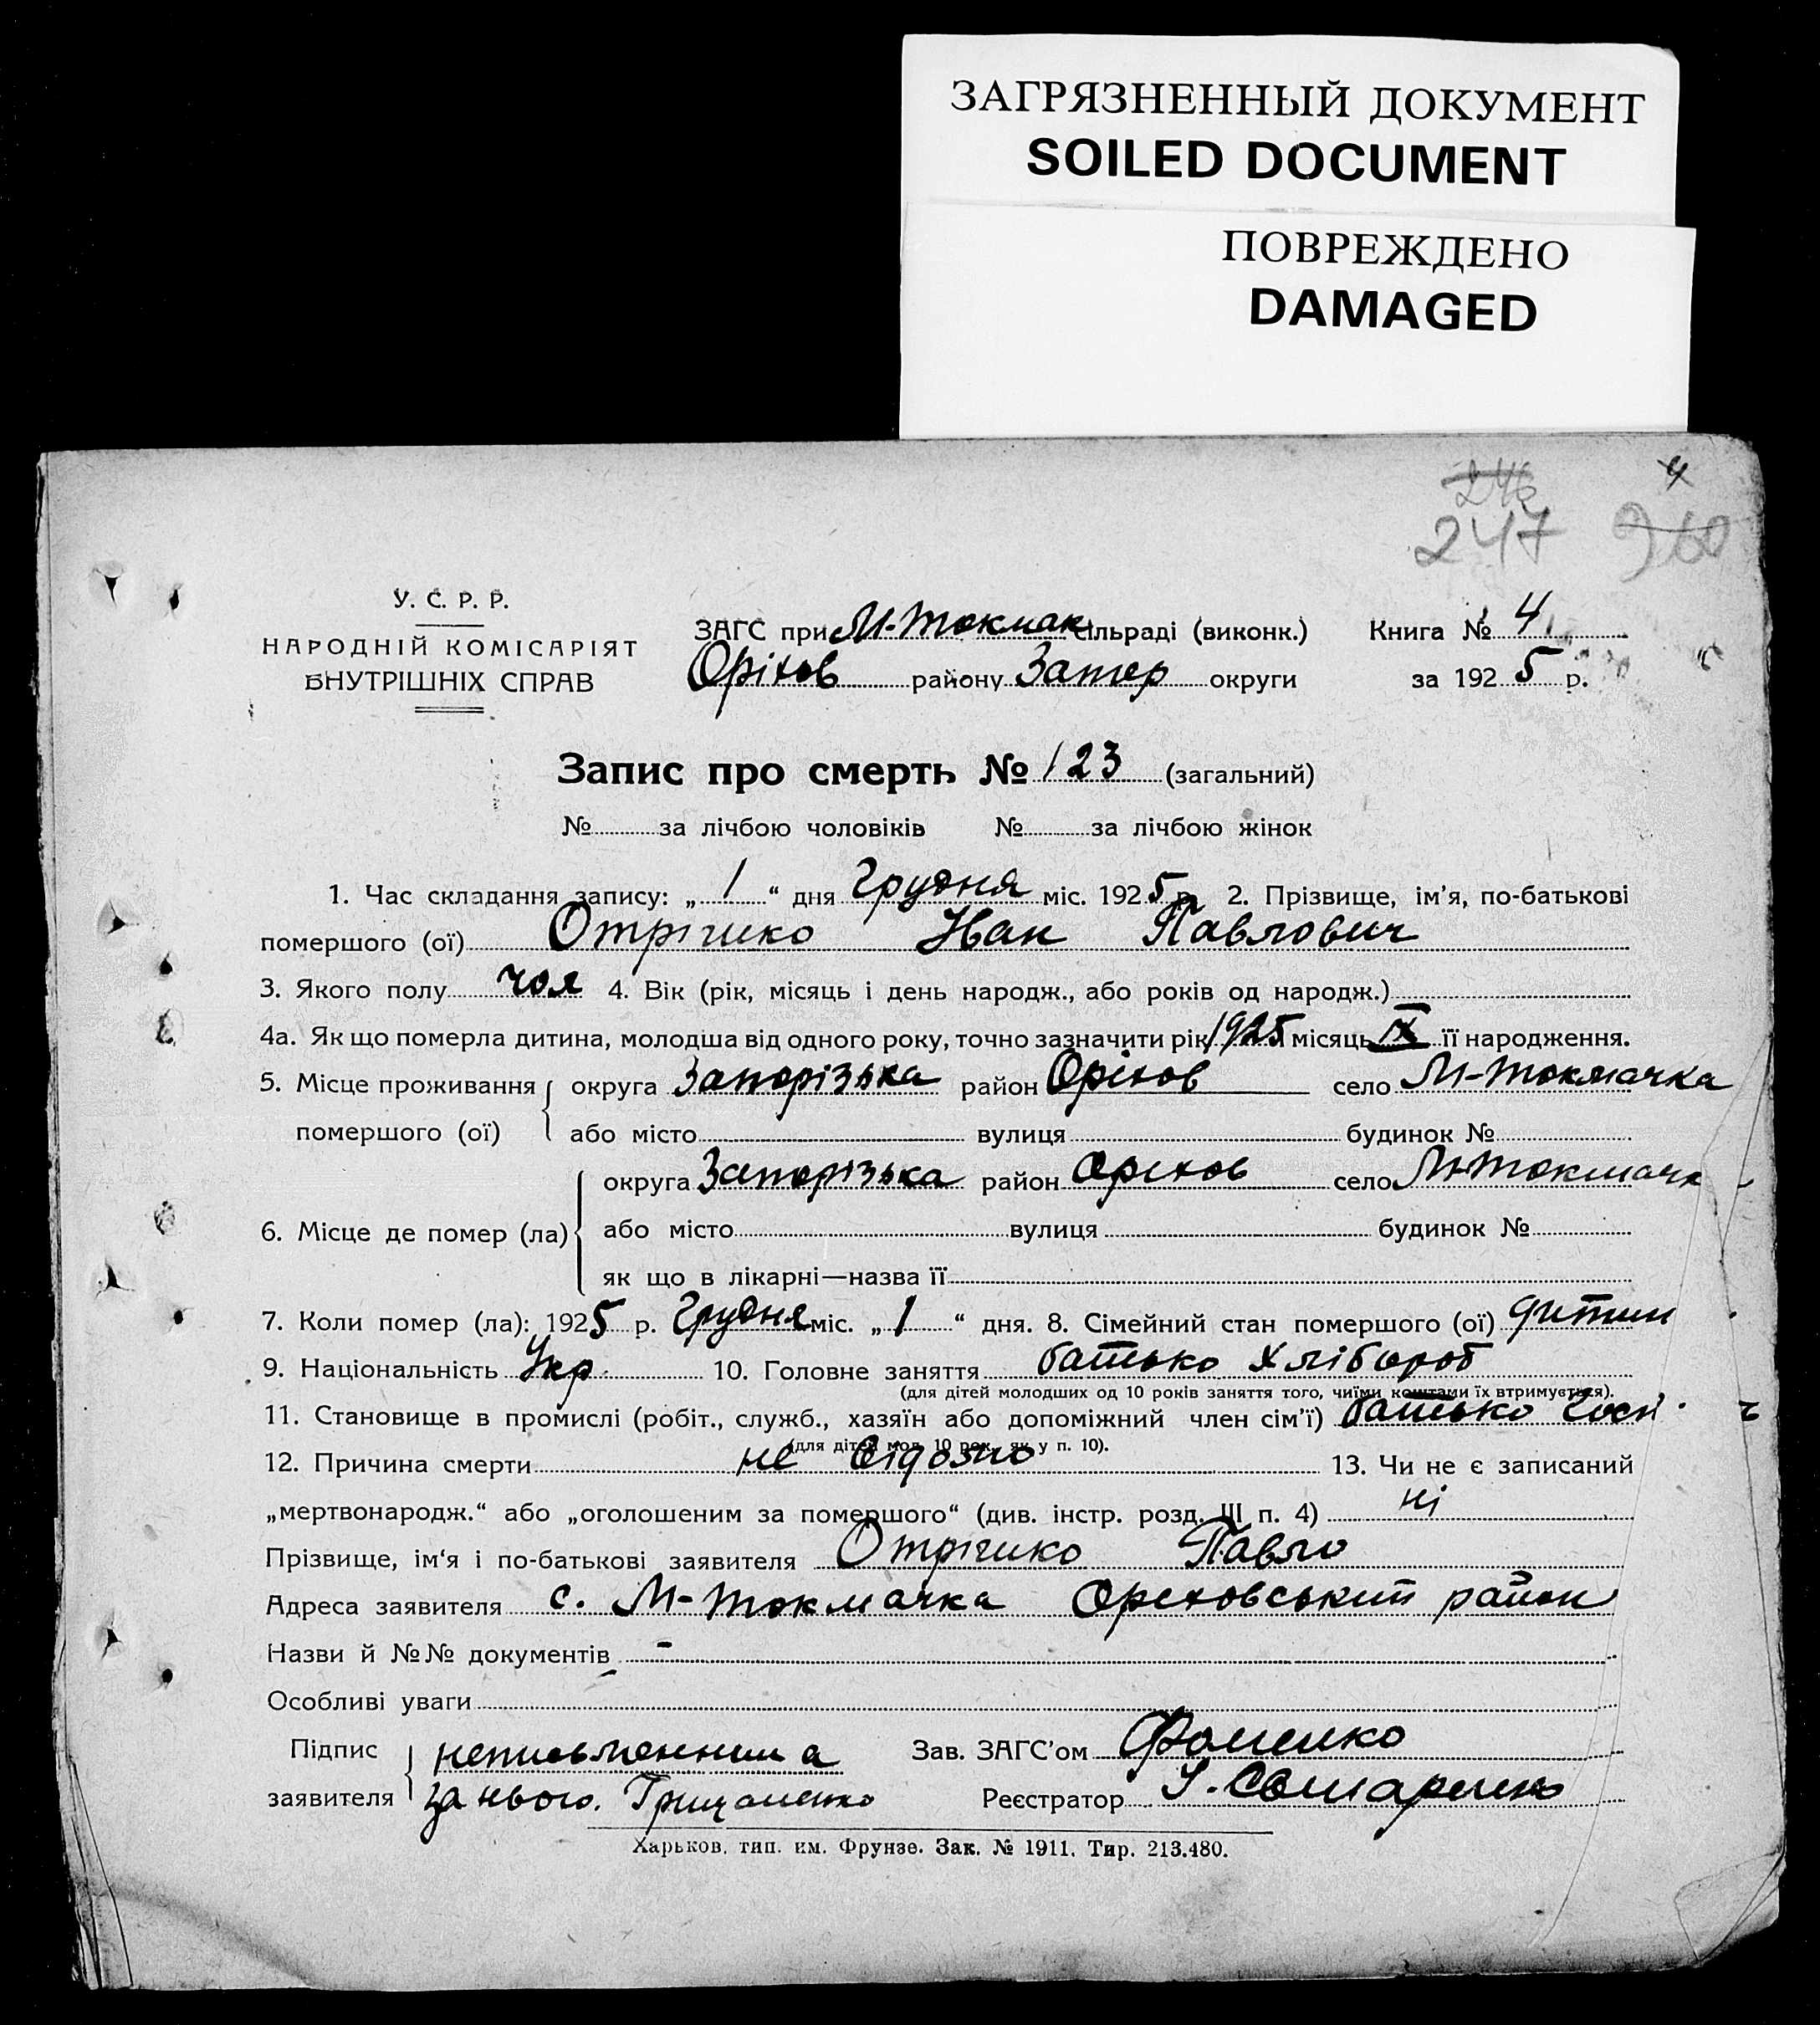 ЗАГРЯЗНЕННЫЙ ДОКУМЕНТ
SOILED DOCUMENT
ПОВРЕЖДЕНО
DAMAGED
4
246
247 960
У. С. Р. Р.
НАРОДНІЙ КОМІСАРІЯТ
ВНУТРІШНІХ СПРАВ
ЗАГС при М-Токмак сільраді (виконк.) Книга № 4
Оріхов району Запор округи за 1925 р.
Запис про смерть № 123 (загальний)
№ за лічбою чоловіків № за лічбою жінок
1. Час складання запису: „ 1 “ дня Грудня міс. 1925 р. 2. Прізвище, ім'я, по-батькові
помершого (ої) Отрішко Иван Павлович
3. Якого полу чол 4. Вік (рік, місяць і день народж., або років од народж.)
4а. Як що померла дитина, молодша від одного року, точно зазначити рік 1925 місяць IX її народження.
5. Місце проживання помершого (ої) округа Запорізька район Оріхов село М-Токмачка
або місто вулиця будинок №
6. Місце де помер (ла) округа Запорізька район Орехов село М-Токмачк
або місто вулиця будинок №
як що в лікарні—назва її
7. Коли помер (ла): 1925 р. Грудня міс. „ 1 “ дня. 8. Сімейний стан помершого (ої) дитин
9. Національність Укр. 10. Головне заняття батько хлібороб
(для дітей молодших од 10 років заняття того, чиїми коштами їх втримується).
11. Становище в промислі (робіт., служб., хазяїн або допоміжний член сім'ї) батько
(для дітей мол. 10 рок. як у п. 10).
12. Причина смерти не відомо 13. Чи не є записаний
„мертвонародж.“ або „оголошеним за помершого“ (див. інстр. розд. III п. 4) ні
Прізвище, ім'я і по-батькові заявителя Отрішко Павло
Адреса заявителя с. М-Токмачка Ореховський район
Назви й №№ документів -
Особливі уваги
Підпис заявителя неписьменний а Зав. ЗАГС'ом Фоменко
за нього. Реєстратор
Харьков, тип. им. Фрунзе. Зак. № 1911. Тир. 213.480.